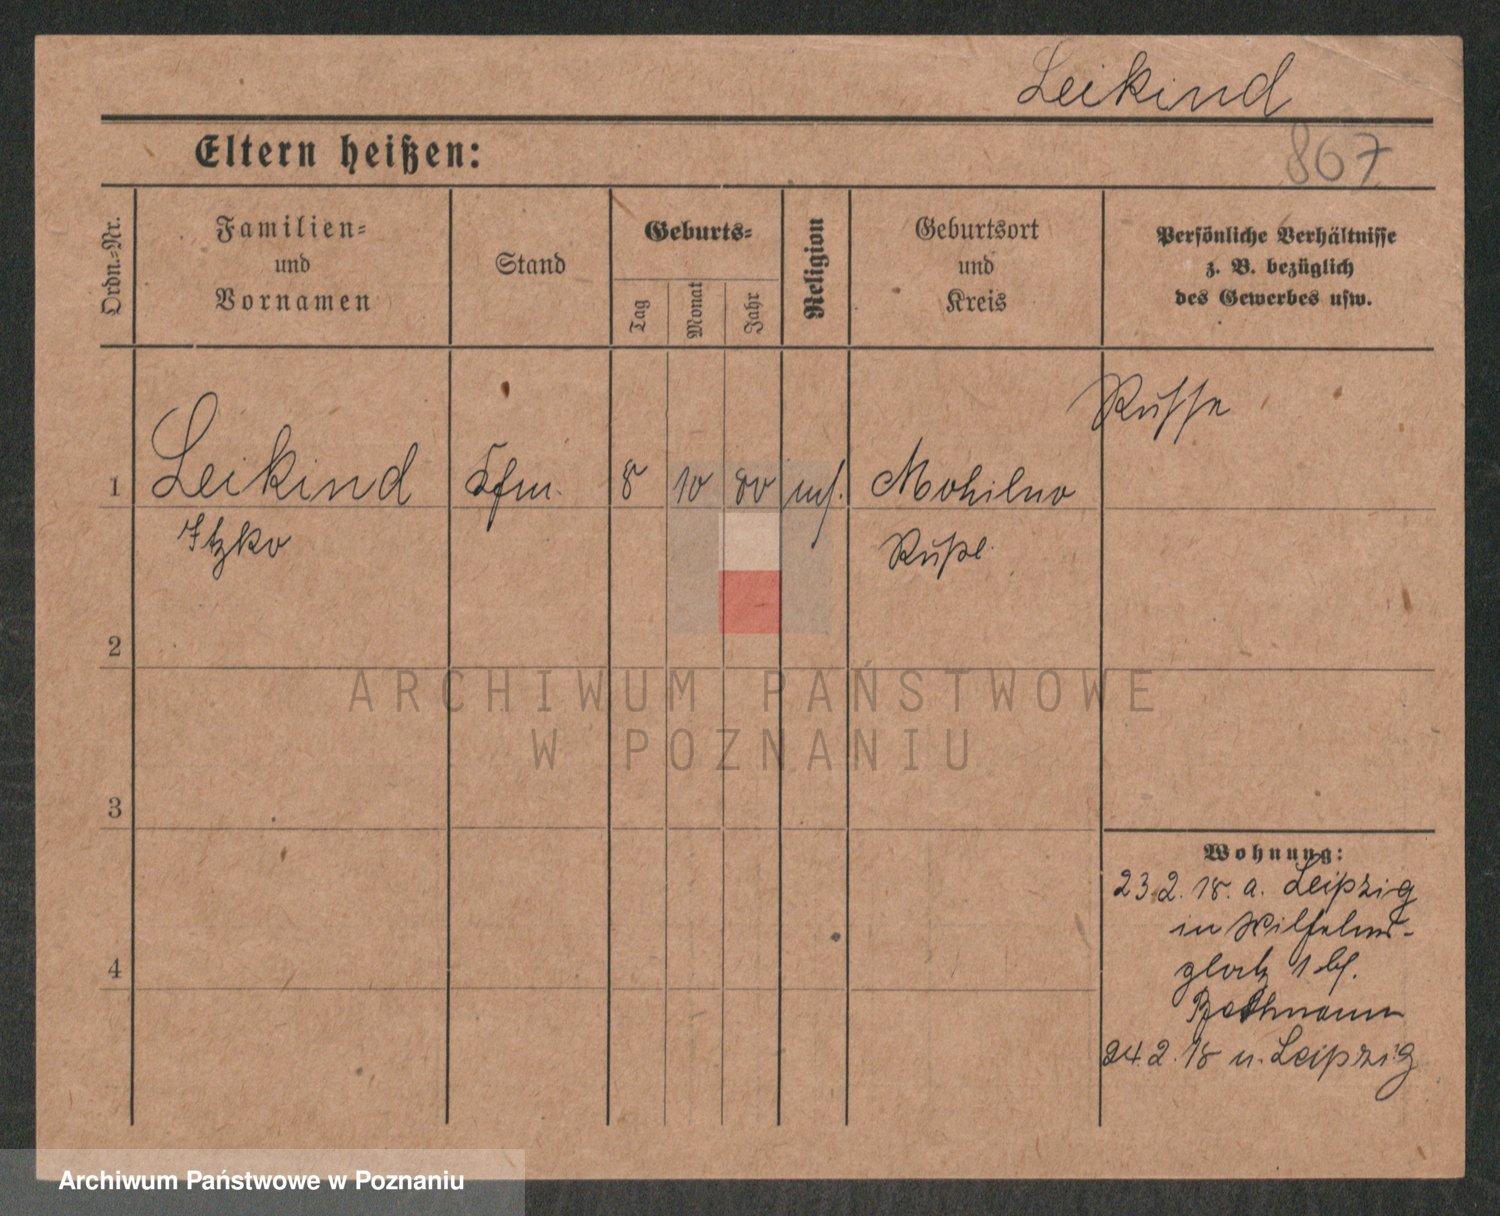 Leikind
867
Eltern heißen:
Ordn.-Nr.
Familien-
und
Vornamen
Stand
Geburts-
Tag
Monat
Jahr
Religion
Geburtsort
und
Kreis
Persönliche Verhältnisse
z. B. bezüglich
des Gewerbes usw.
Russe
1 Leikind Kfm. 8 10 80 Mohilno
Itzko Rußl.
2
ARCHIWUM PAŃSTWOWE
W POZNANIU
3
4
Wohnung:
23.2.18. a. Leipzig
in Wilhelms-
platz 1 bf.
24.2.18 n. Leipzig
Archiwum Państwowe w Poznaniu